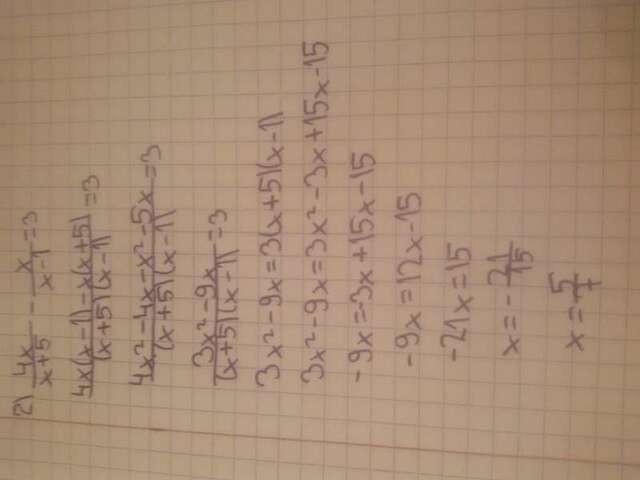 2) 4x/x+5 - x/x-1 = 3
4x(x-1)-x(x+5)/(x+5)(x-1) = 3
4x²-4x-x²-5x/(x+5)(x-1) = 3
3x²-9x/(x+5)(x-1) = 3
3x²-9x=3(x+5)(x-1)
3x²-9x=3x²-3x+15x-15
-9x=-3x+15x-15
-9x=12x-15
-21x=15
x=-21/15
x=5/7